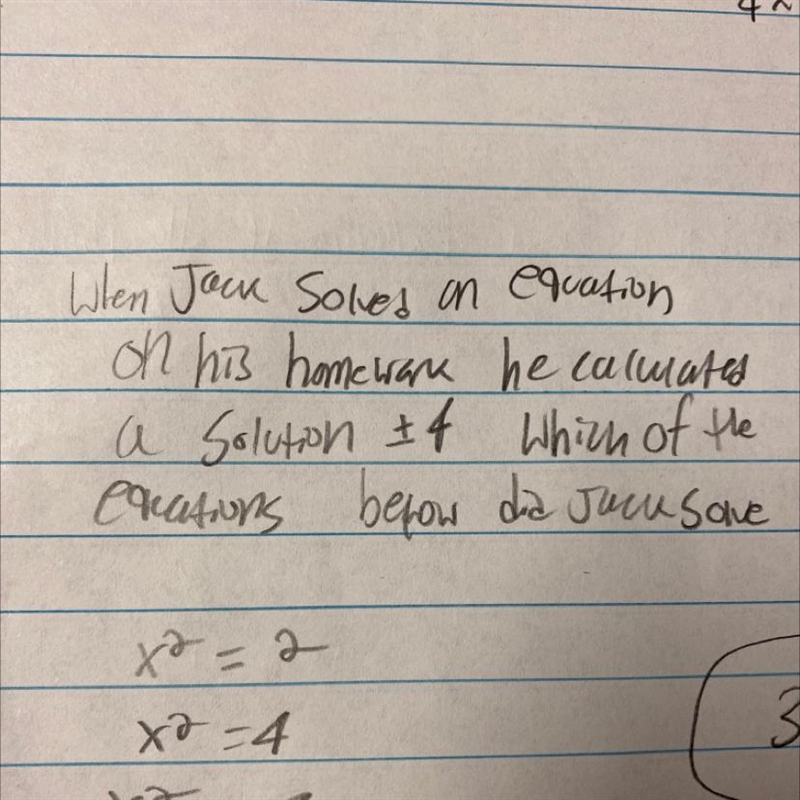 4
When Jack Solved an equation
on his homework he calculated
a Solution ±4 Which of the
equations below did Jack Solve
x² = 2
x² = 4
3
x²